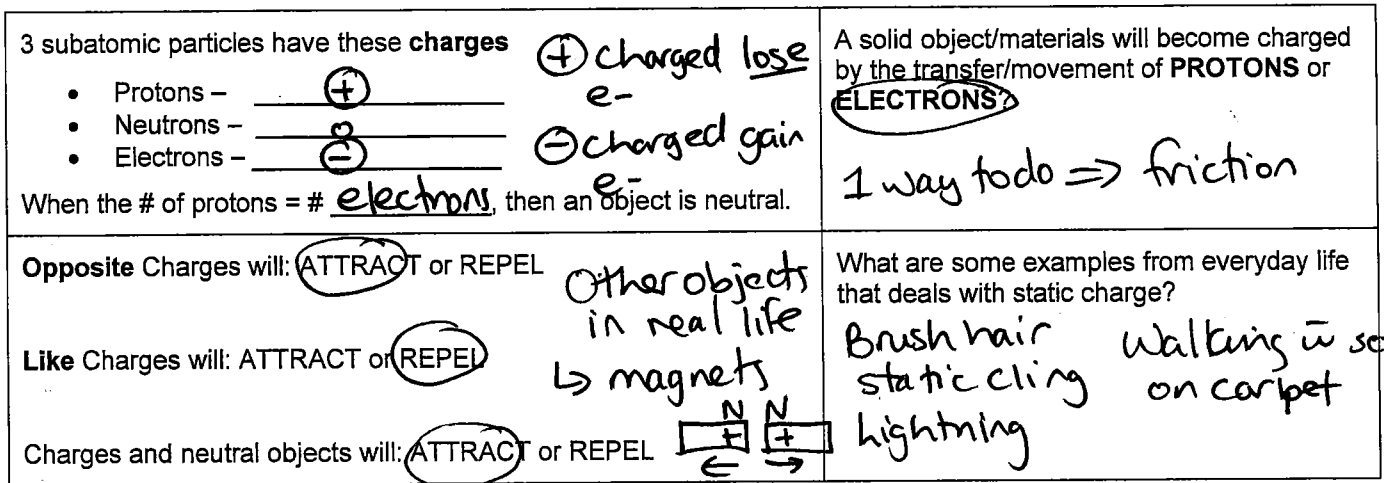 3 subatomic particles have these charges
• Protons – +
• Neutrons – 0
• Electrons – -
When the # of protons = # electrons, then an object is neutral.
+ charged lose
e-
- charged gain
e-
A solid object/materials will become charged
by the transfer/movement of PROTONS or
ELECTRONS?
1 way to do => friction
Opposite Charges will: ATTRACT or REPEL
Like Charges will: ATTRACT or REPEL
Charges and neutral objects will: ATTRACT or REPEL
Other objects
in real life
↳ magnets
N N
+ +
← →
What are some examples from everyday life
that deals with static charge?
Brush hair
static cling
Lightning
Walking w̄
on carpet